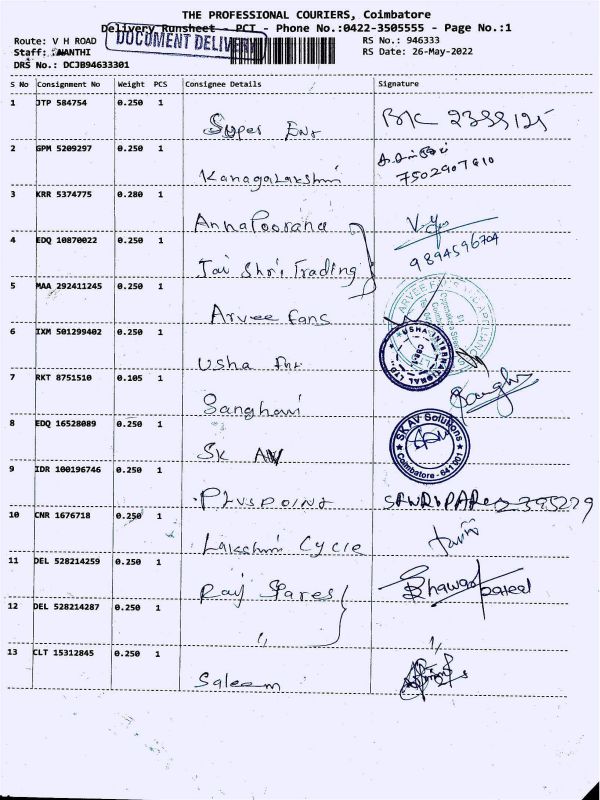 THE PROFESSIONAL COURIERS, Coimbatore
Delivery Runsheet - PCT - Phone No.:0422-3505555 - Page No.:1
DOCUMENT DELIVERY
Route: V H ROAD RS No.: 946333
Staff: RS Date: 26-May-2022
DRS No.: DCJB94633301
S No Consignment No Weight PCS Consignee Details Signature
1 JTP 584754 0.250 1
Super Ent 2399125
2 GPM 5209297 0.250 1
Kanagalakshmi
3 KRR 5374775 0.280 1
Annapoorana
9894596704
4 EDQ 10870022 0.250 1
Jai Shri Trading
5 MAA 292411245 0.250 1
Arvee fans
6 IXM 501299402 0.250 1
USHA INTERNATIONAL LTD
CBE-1
Usha Int
7 RKT 8751510 0.105 1
Sanghavi
8 EDQ 16528089 0.250 1
SK AV Solutions
Coimbatore - 641 001
SK AV
9 IDR 100196746 0.250 1
Pluspoint
10 CNR 1676718 0.250 1
Lakshmi Cycle
11 DEL 528214259 0.250 1
Raj Spares Bhawar pateel
12 DEL 528214287 0.250 1
〃
13 CLT 15312845 0.250 1
Saleem